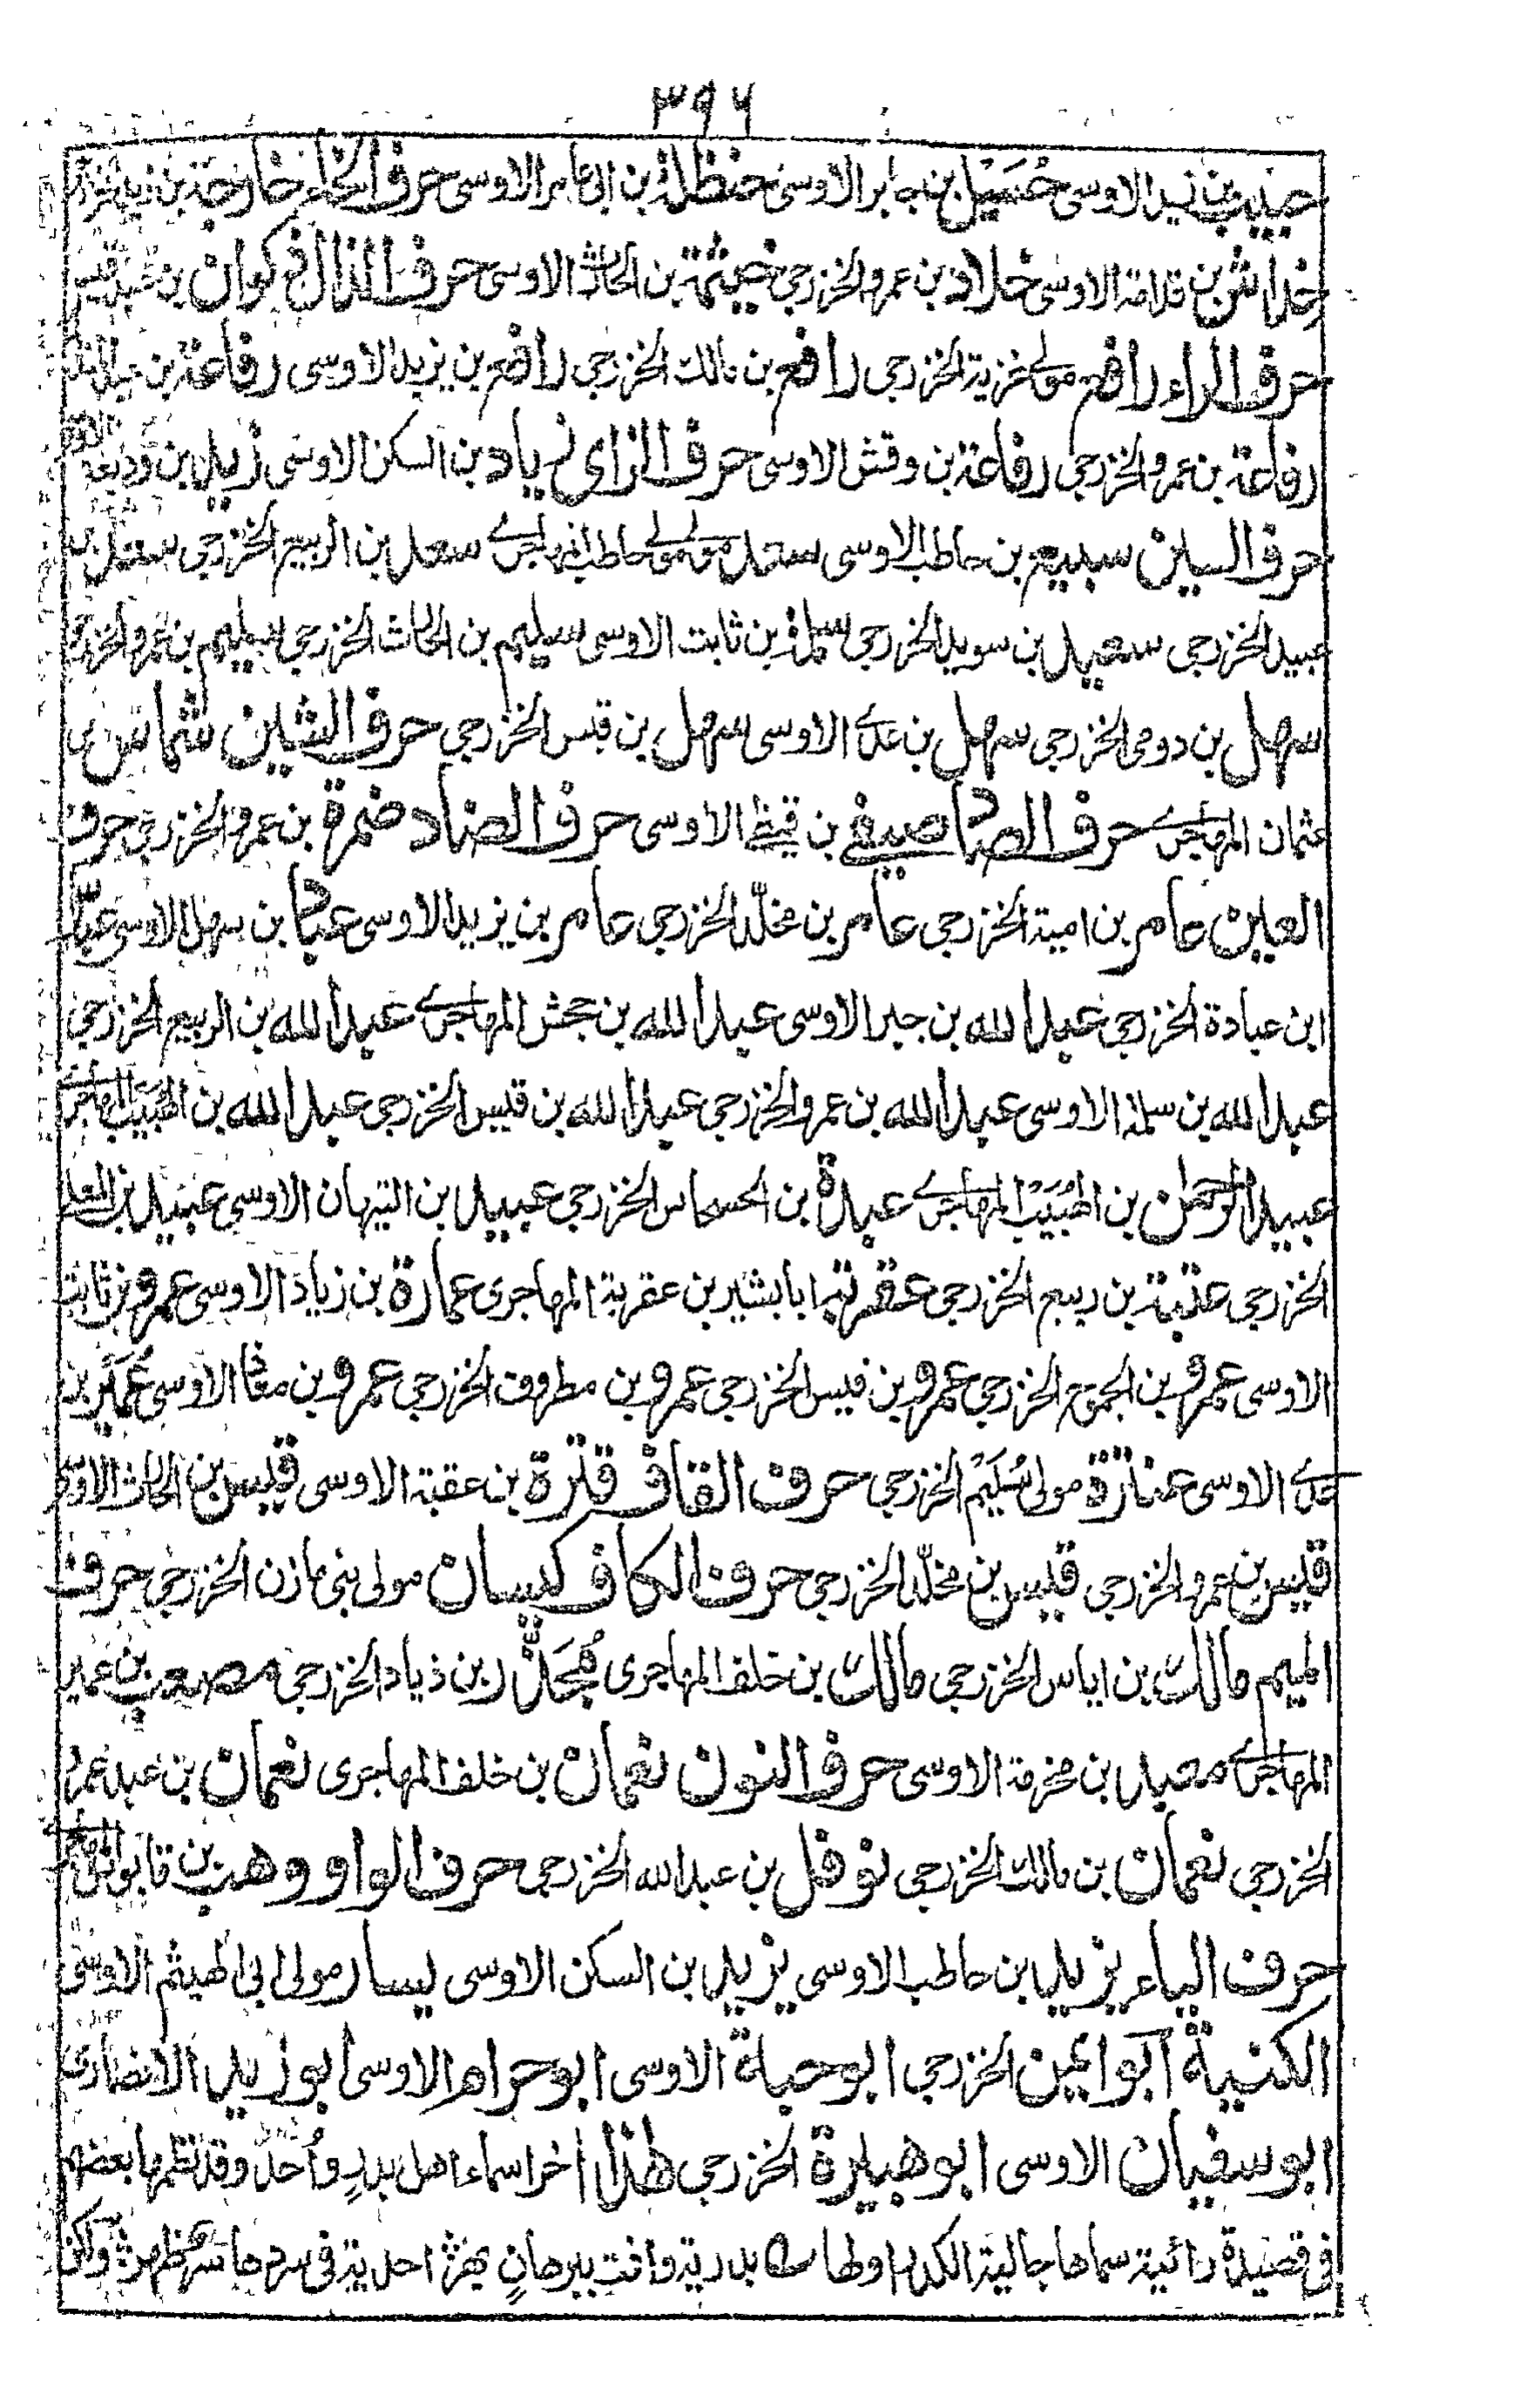 ٣٩٦
حبيب بن زيد الاوسى حُسَيْل بن جابر الاوسى حنظلة بن ابى عامر الاوسى حرف الخاء خارجة بن زيد
خداش بن قدامة الاوسى خلاد بن عمرو الخزرجى خيثمة بن الحارث الاوسى حرف الذال ذكوان بن عبد قيس
حرف الراء رافع مولى غزية الخزرجى رافع بن مالك الخزرجى رافع بن يزيد الاوسى رفاعة بن عبد المنذر
رفاعة بن عمرو الخزرجى رفاعة بن وقش الاوسى حرف الزاى زياد بن السكن الاوسى زيد بن وديعة
حرف السين سبيع بن حاطب الاوسى سعد مولى حاطب المهاجرى سعد بن الربيع الخزرجى سعد بن
عبيد الخزرجى سعيد بن سويد الخزرجى سلمة بن ثابت الاوسى سليم بن الحارث الخزرجى سليم بن عمرو الخزرجى
سهل بن رومى الخزرجى سهل بن عدى الاوسى سهل بن قيس الخزرجى حرف الشين شماس بن
عثمان المهاجرى حرف الصاد صيفى بن قيظى الاوسى حرف الضاد ضمرة بن عمرو الخزرجى حرف
العين عامر بن امية الخزرجى عامر بن مخلّد الخزرجى عامر بن يزيد الاوسى عباد بن سهل الاوسى عباس
ابن عبادة الخزرجى عبد الله بن جبير الاوسى عبد الله بن جحش المهاجرى عبد الله بن الربيع الخزرجى
عبد الله بن سلمة الاوسى عبد الله بن عمرو الخزرجى عبد الله بن قيس الخزرجى عبد الله بن الهُبَيْب المهاجرى
عبد الرحمن بن الهُبَيْب المهاجرى عبدة بن الحسحاس الخزرجى عبيد بن التيهان الاوسى عبيد بن المعلى
الخزرجى عتبة بن ربيع الخزرجى عقربة ابا بشير بن عقربة المهاجرى عمارة بن زياد الاوسى عمرو بن ثابت
الاوسى عمرو بن الجموح الخزرجى عمرو بن قيس الخزرجى عمرو بن مطروف الخزرجى عمرو بن معاذ الاوسى عُمَيْر بن
عدى الاوسى عنترة مولى سُلَيْم الخزرجى حرف القاف قرة بن عقبة الاوسى قيس بن الحارث الاوسى
قيس بن عمرو الخزرجى قيس بن مخلّد الخزرجى حرف الكاف كيسان مولى بنى مازن الخزرجى حرف
الميم مالك بن اياس الخزرجى مالك بن خلف المهاجرى مُجَذَّر بن ذياد الخزرجى مصعب بن عمير
المهاجرى معبد بن مخرمة الاوسى حرف النون نعمان بن خلف المهاجرى نعمان بن عبد عمرو
الخزرجى نعمان بن مالك الخزرجى نوفل بن عبد الله الخزرجى حرف الواو وهب بن قابوس المهاجرى
حرف الياء يزيد بن حاطب الاوسى يزيد بن السكن الاوسى يسار مولى ابى الهيثم الاوسى
الكنية ابو ايمن الخزرجى ابو حبة الاوسى ابو حرام الاوسى ابو زيد الانصارى
ابو سفيان الاوسى ابو هبيرة الخزرجى هذا اخر اسماء اهل بدرٍ واُحدٌ وقد نظمها بعضهم
فى قصيدة رائية سماها جالية الكدر اولها بدرية وافت ببرهانٍ بهر احدية فى سردها سر ظهر